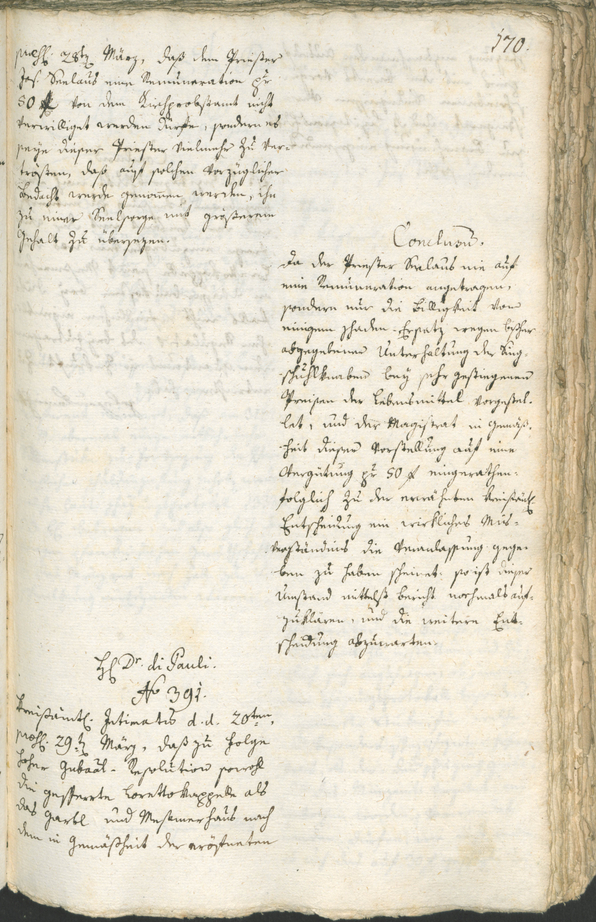 170.
præs. 28ten März, daß dem Priester
Jos. Seelaus eine Remuneration pr
50 f von dem Kirchprobstamt nicht
verwilliget werden dürfte, sondern es
seye dieser Priester vielmehr zu ver-
trösten, daß auf solchen vorzüglicher
Bedacht werde genommen werden, ihn
zu einer Seelsorge mit größerem
Gehalt zu übersezen.
Conclusum.
Da der Priester Seelaus nie auf
eine Remuneration angetragen,
sondern nur die Billigkeit von
einigem Schaden-Ersatz wegen bisher
abgegebener Unterhaltung der Sing-
schuhlknaben bey sehr gestiegenen
Preisen der Lebensmittel vorgestel-
let, und der Magistrat in Gemäß-
heit dieser Vorstellung auf eine
Vergütung pr 50 f eingerathen:
folglich zu der erwähnten kreisämtl.
Entscheidung ein wirkliches Mis-
verständnis die Veranlassung gege-
ben zu haben scheinet, so ist dieser
Umstand mittelst Bericht nochmals auf-
zuklären, und die weitere Ent-
scheidung abzuwarten.
H. Dr. di Pauli.
No 391.
Kreisämtl. Intimatus d. d. 20ten,
præs. 29ten März, daß zu Folge
hoher Gubaal-Resolution sowohl
die gesperrte Lorettokappelle als
das Gartl und Messmerhaus nach
dem in Gemäßheit der eröfneten